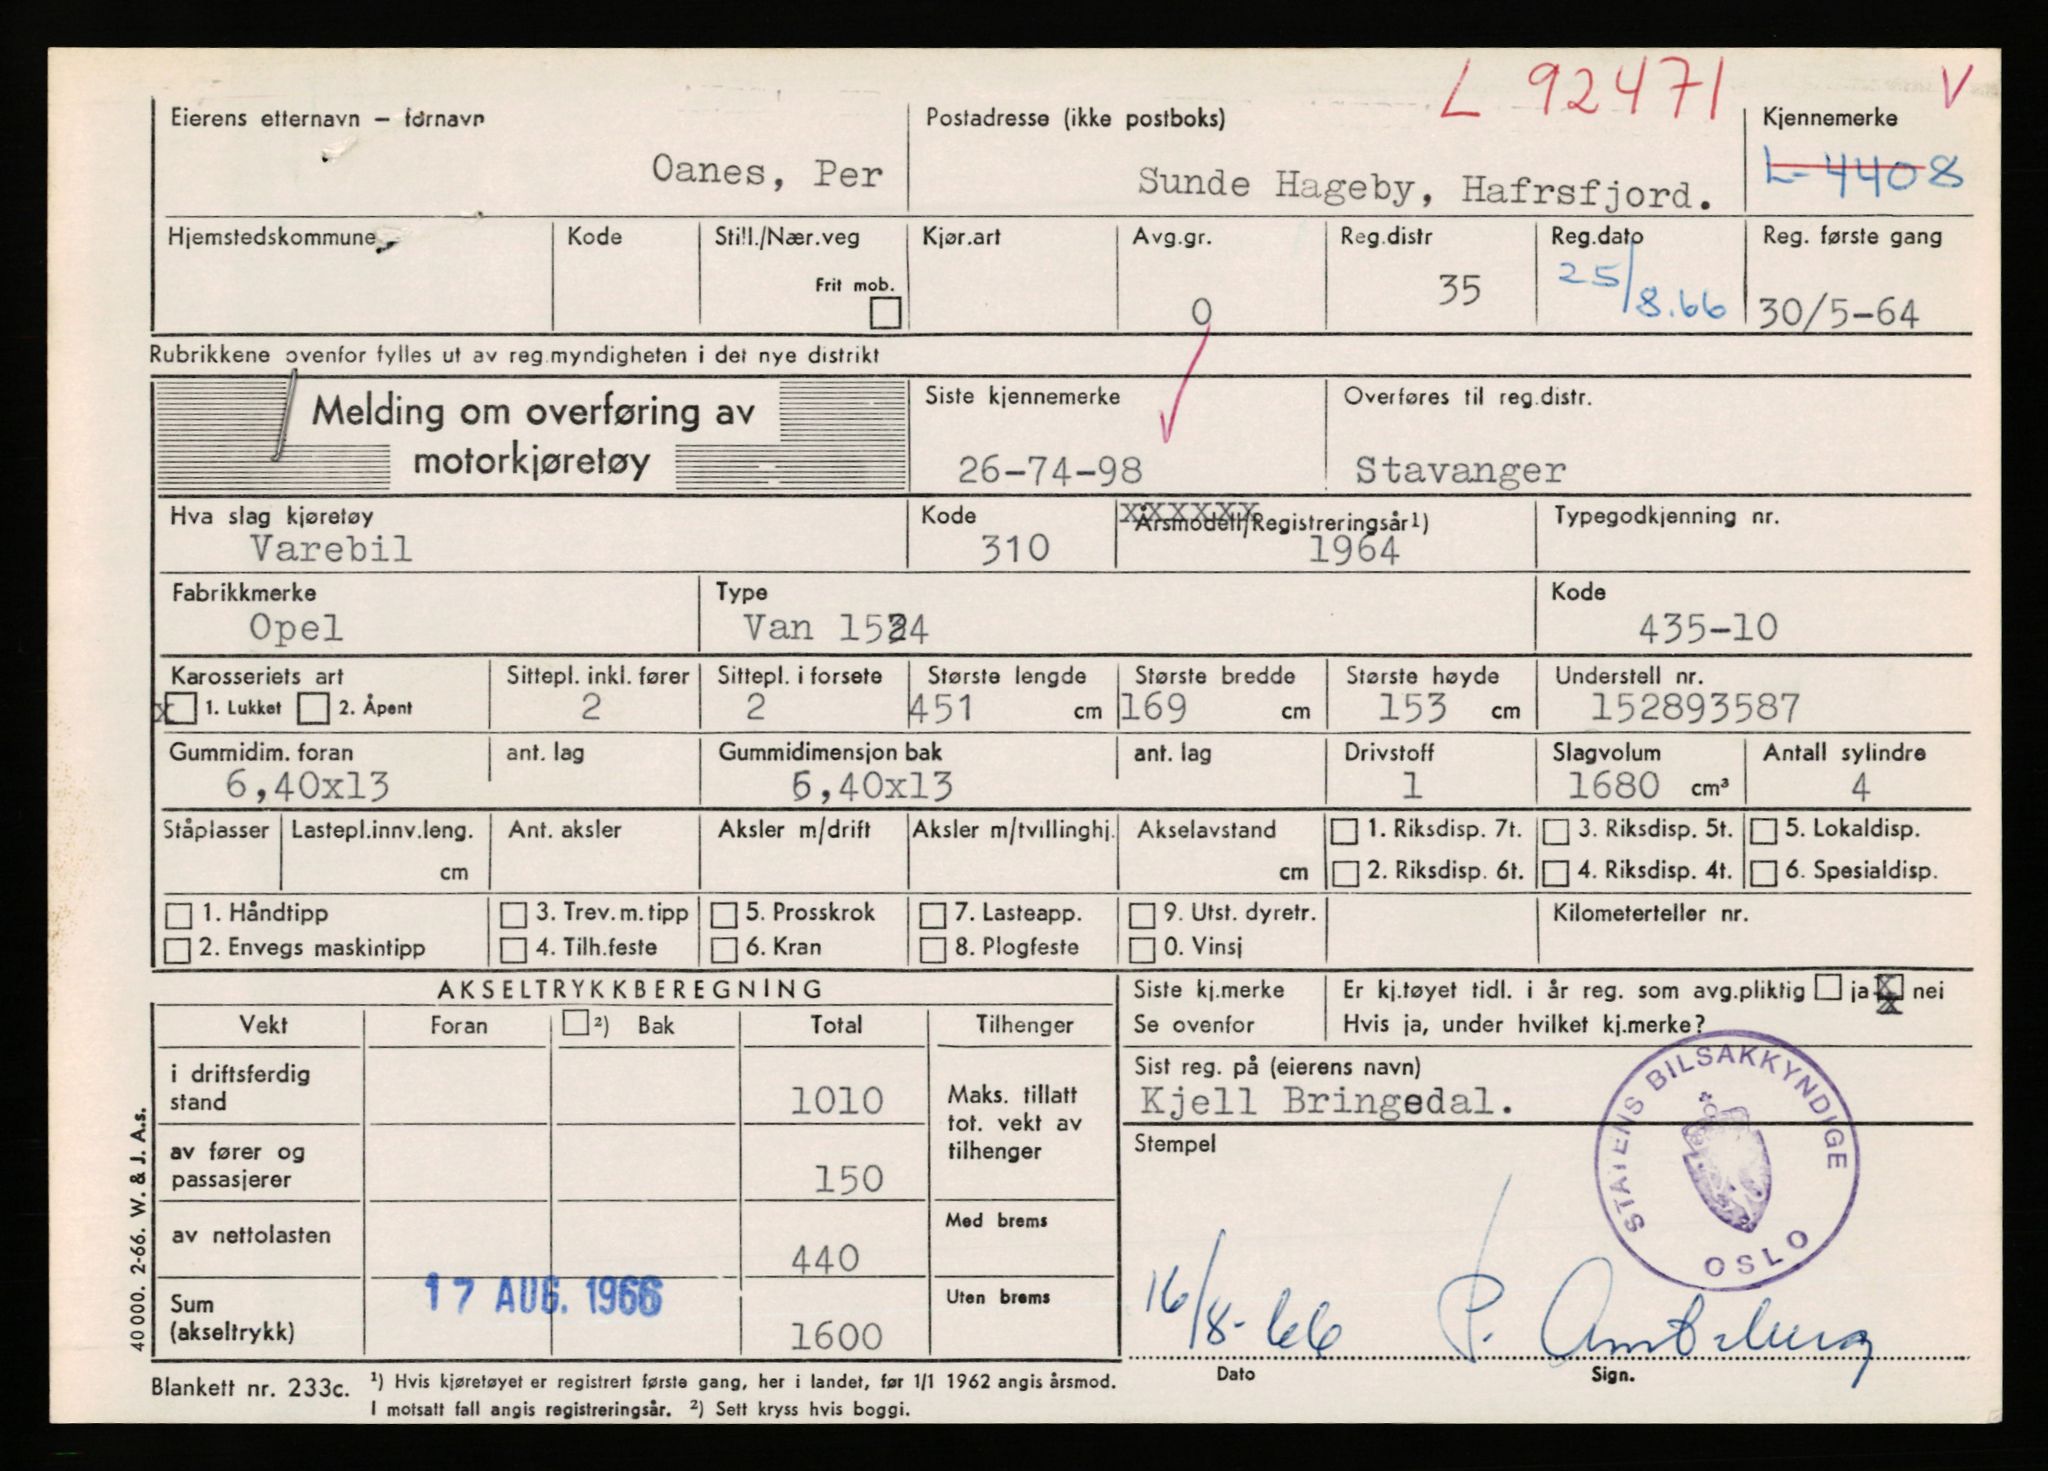 L 92471 V
Eierens etternavn – fornavn Postadresse (ikke postboks) Kjennemerke
Oanes, Per Sunde Hageby, Hafrsfjord. L-4408
Hjemstedskommune Kode Still./Nær.veg Kjør.art Avg.gr. Reg.distr Reg.dato Reg. første gang
Frit mob. 0 35 25/8.66 30/5-64
Rubrikkene ovenfor fylles ut av reg.myndigheten i det nye distrikt
Melding om overføring av Siste kjennemerke Overføres til reg.distr.
motorkjøretøy 26-74-98 Stavanger
Hva slag kjøretøy Kode Årsmodell/Registreringsår1) Typegodkjenning nr.
Varebil 310 1964
Fabrikkmerke Type Kode
Opel Van 1524 435-10
Karosseriets art Sittepl. inkl. fører Sittepl. i forsete Største lengde Største bredde Største høyde Understell nr.
x 1. Lukket 2. Åpent 2 2 451 cm 169 cm 153 cm 152893587
Gummidim. foran ant. lag Gummidimensjon bak ant. lag Drivstoff Slagvolum Antall sylindre
6,40x13 6,40x13 1 1680 cm³ 4
Ståplasser Lastepl.innv.leng. Ant. aksler Aksler m/drift Aksler m/tvillinghj. Akselavstand 1. Riksdisp. 7t. 3. Riksdisp. 5t. 5. Lokaldisp.
cm cm 2. Riksdisp. 6t. 4. Riksdisp. 4t. 6. Spesialdisp.
1. Håndtipp 3. Trev.m.tipp 5. Prosskrok 7. Lasteapp. 9. Utst. dyretr. Kilometerteller nr.
2. Envegs maskintipp 4. Tilh.feste 6. Kran 8. Plogfeste 0. Vinsj
AKSELTRYKKBEREGNING Siste kj.merke Er kj.tøyet tidl. i år reg. som avg.pliktig ja x nei
Vekt Foran 2) Bak Total Tilhenger Se ovenfor Hvis ja, under hvilket kj.merke?
i driftsferdig stand 1010
Maks. tillatt tot. vekt av tilhenger
Sist reg. på (eierens navn)
Kjell Bringedal.
av fører og passasjerer 150
Stempel
STATENS BILSAKKYNDIGE
OSLO
av nettolasten 440 Med brems
Sum (akseltrykk) 1600 Uten brems
17 AUG. 1966
16/8-66 P.
Dato Sign.
40 000. 2-66. W. & J. A.s.
Blankett nr. 233c. 1) Hvis kjøretøyet er registrert første gang, her i landet, før 1/1 1962 angis årsmod.
I motsatt fall angis registreringsår. 2) Sett kryss hvis boggi.